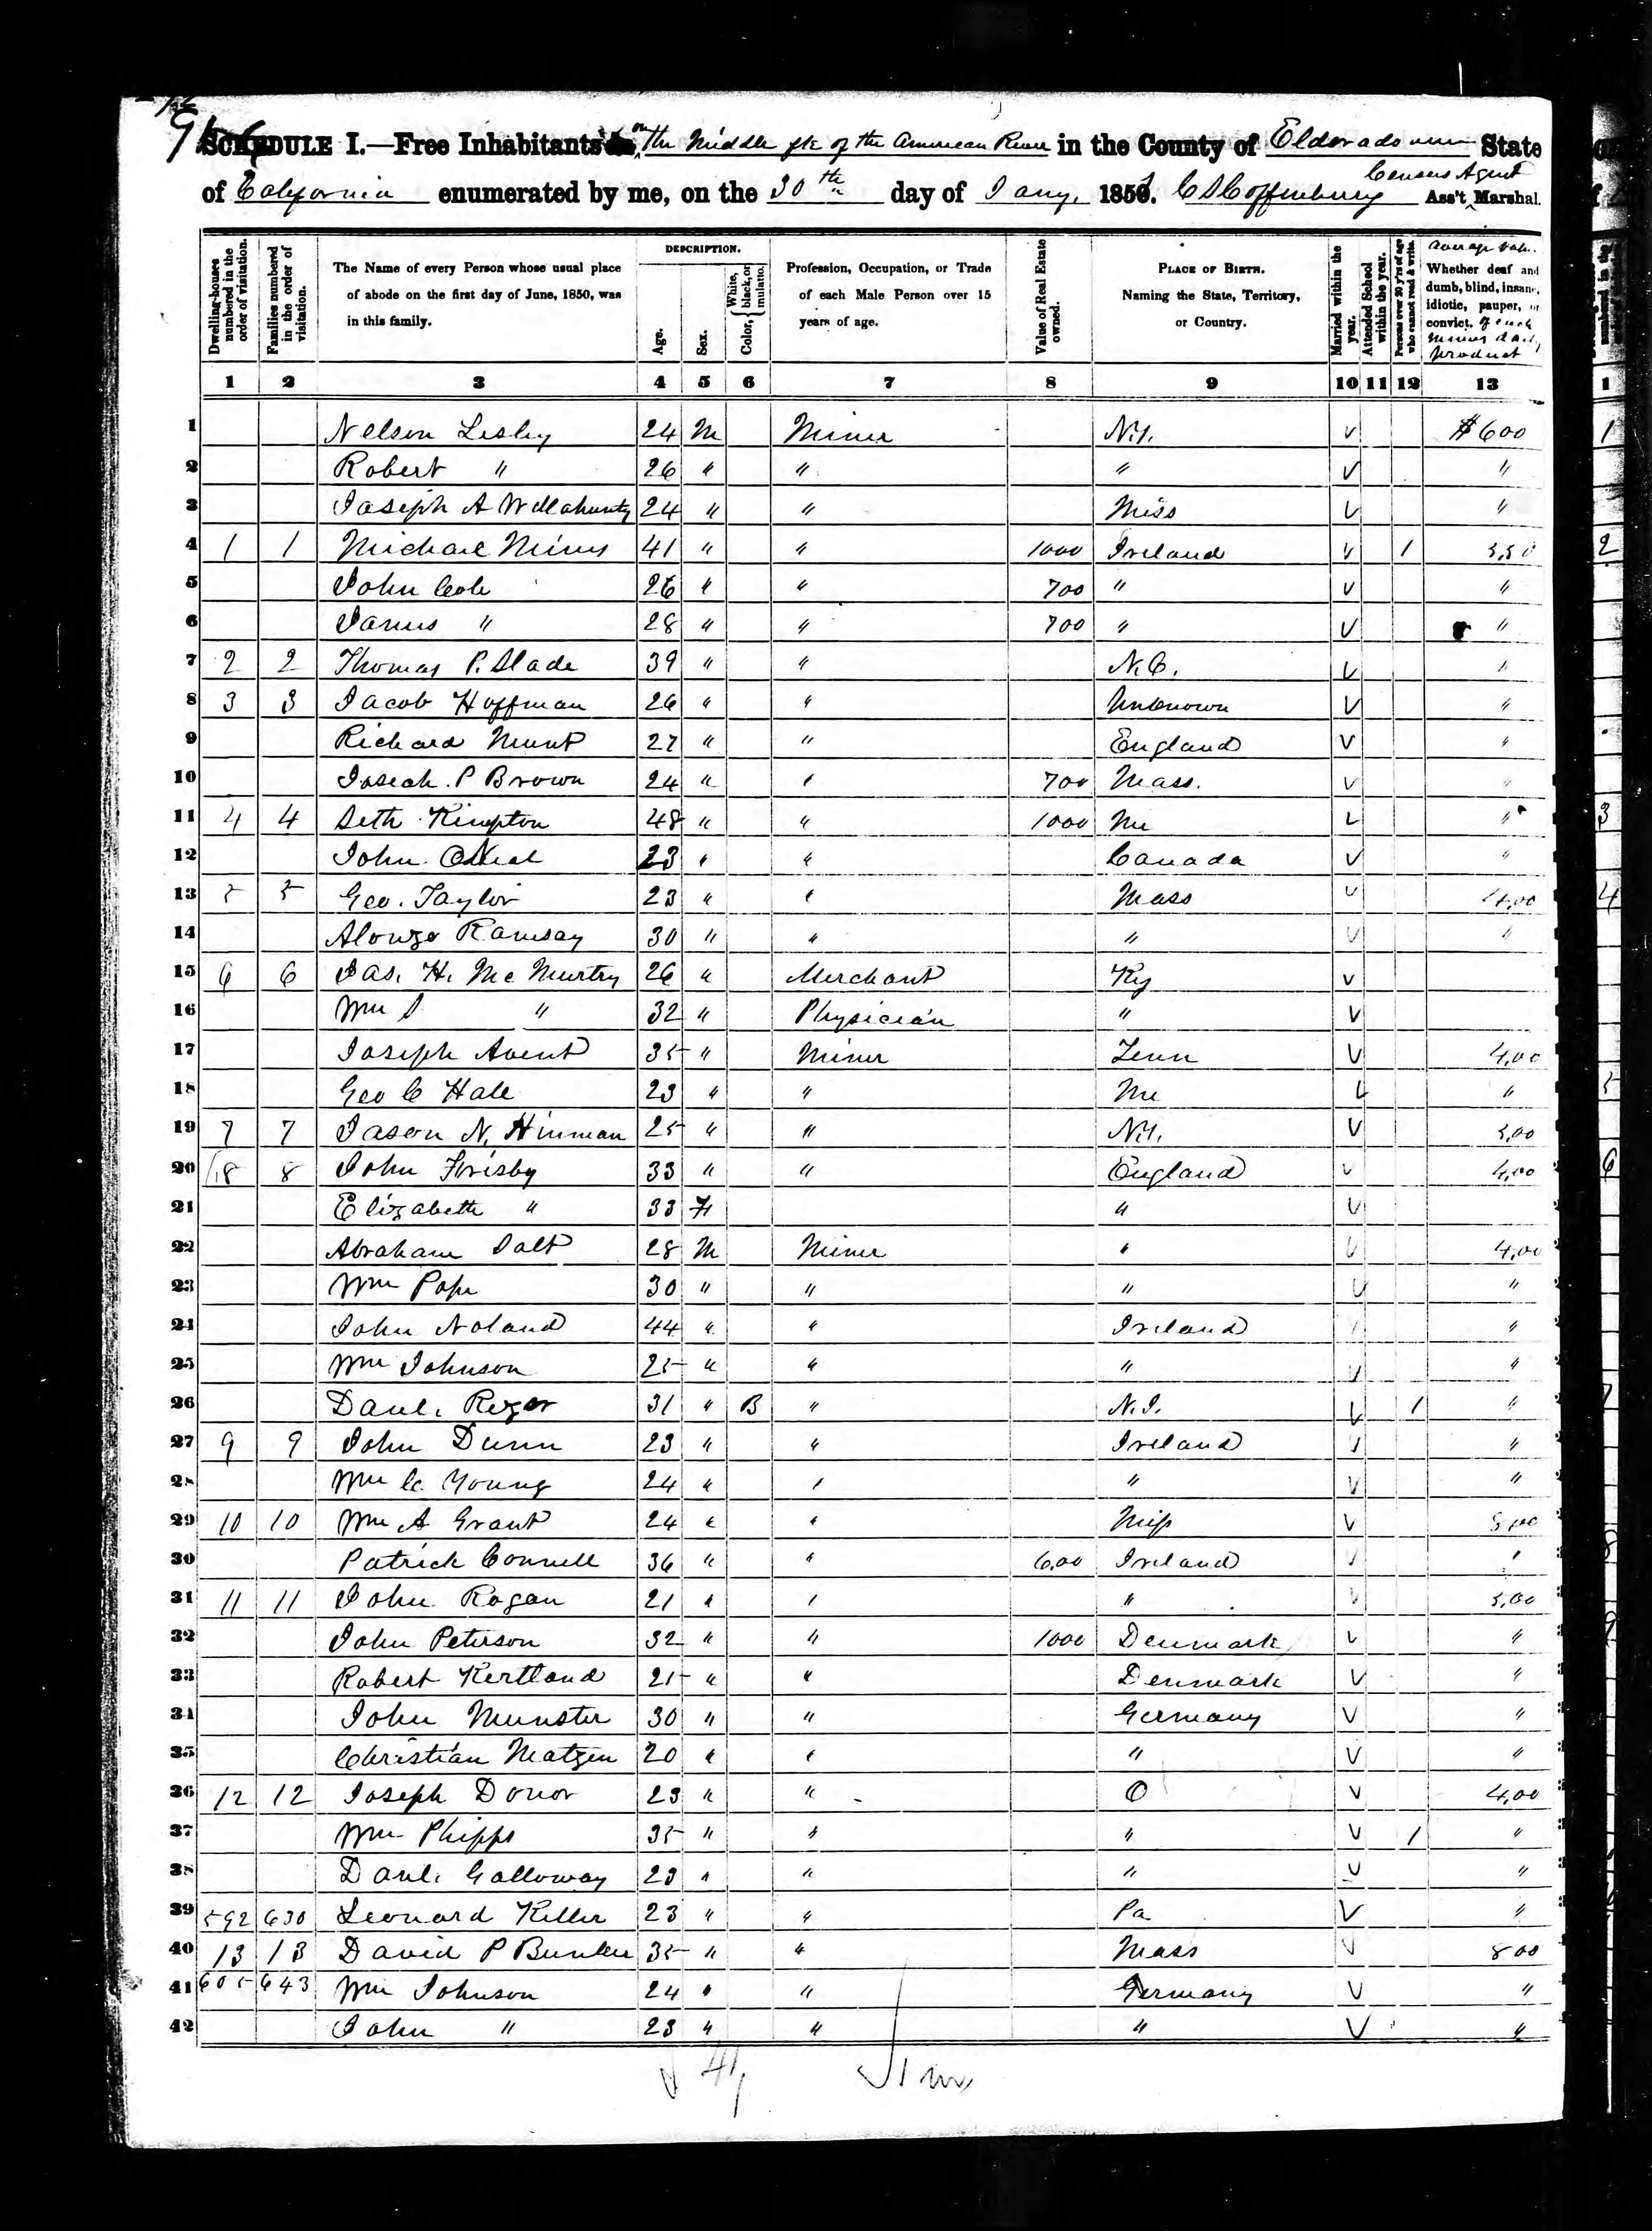 SCHEDULE I.—Free Inhabitants on the Middle fk of the American River in the County of Eldorado State
of California enumerated by me, on the 30th day of Jany, 1851. C S Coffinbury Census Agent Ass't Marshal.
Dwelling-houses numbered in the order of visitation.
Families numbered in the order of visitation.
The Name of every Person whose usual place of abode on the first day of June, 1850, was in this family.
DESCRIPTION.
Age.
Sex.
Color, White, black, or mulatto.
Profession, Occupation, or Trade of each Male Person over 15 years of age.
Value of Real Estate owned.
PLACE OF BIRTH. Naming the State, Territory, or Country.
Married within the year.
Attended School within the year.
Persons over 20 y'rs of age who cannot read & write.
average vale. Whether deaf and dumb, blind, insane, idiotic, pauper, or convict. of each miners daily product
1 2 3 4 5 6 7 8 9 10 11 12 13
1 Nelson Lesley 24 M Miner N.Y. V $600
2 Robert " 26 " " " V "
3 Joseph A 24 " " Miss V "
4 1 1 Michael Mines 41 " " 1000 Ireland V 1 5,50
5 John Cole 26 " " 700 " V "
6 James " 28 " " 700 " V "
7 2 2 Thomas P. Slade 39 " " N.C. V "
8 3 3 Jacob Hoffman 26 " " Unknown V "
9 Richard Munt 27 " " England V "
10 Joseah. P Brown 24 " " 700 Mass. V "
11 4 4 Seth Kimpton 48 " " 1000 Me V "
12 John 23 " " Canada V "
13 5 5 Geo. Taylor 23 " " Mass V 4,00
14 Alonzo Ramsay 30 " " " V "
15 6 6 Jas. H. Mc Murtry 26 " Merchant Ky V
16 Wm S " 32 " Physician " V
17 Joseph Avent 35 " Miner Tenn V 4,00
18 Geo C Hale 23 " " Me V "
19 7 7 Jason N. Hinman 25 " " N.Y. V 5,00
20 8 8 John Frisby 33 " " England V 4,00
21 Elizabeth " 33 F " V
22 Abraham Salt 28 M Miner " V 4,00
23 Wm Pope 30 " " " V "
24 John Noland 44 " " Ireland "
25 Wm Johnson 25 " " " V "
26 Danl. Rezor 31 " B " N.J. V 1 "
27 9 9 John Dunn 23 " " Ireland V "
28 Wm C. Young 24 " " " V "
29 10 10 Wm A Grant 24 " " Miss V 8,00
30 Patrick Connell 36 " " 6,00 Ireland V "
31 11 11 John Rogan 21 " " " V 5,00
32 John Peterson 32 " " 1000 Denmark V "
33 Robert Kertland 25 " " Denmark V "
34 John Munster 30 " " Germany V "
35 Christian Matzen 20 " " " V "
36 12 12 Joseph Donor 23 " " O V 4,00
37 Wm Phipps 35 " " " V 1 "
38 Danl. Galloway 23 " " " V "
39 592 630 Leonard Keller 23 " " Pa V "
40 13 13 David P Bunker 35 " " Mass V 800
41 605 643 Wm Johnson 24 " " Germany V "
42 John " 23 " " " V "